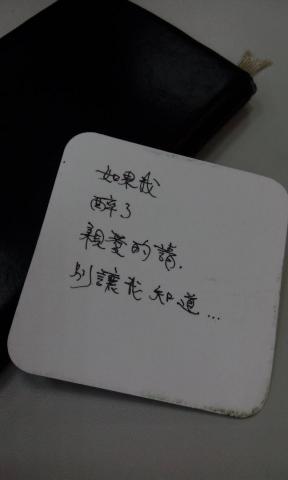 如果我
醉了
親愛的請.
別讓我知道...